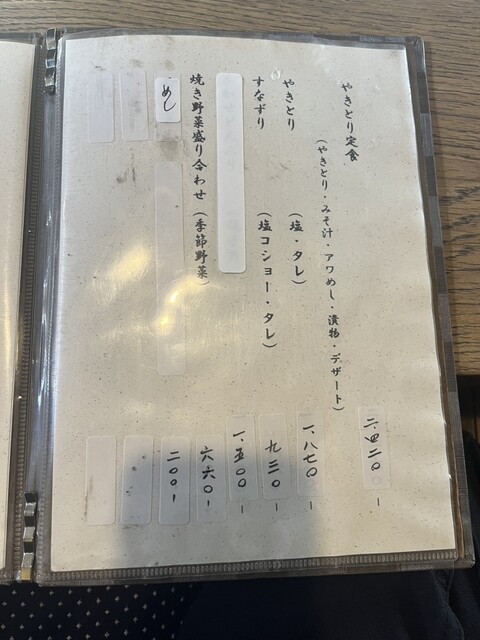 やきとり定食 二、四二〇ー
(やきとり・みそ汁・アワめし・漬物・デザート)
やきとり (塩・タレ) 一、八七〇ー
すなずり (塩コショー・タレ) 九三〇ー
一、五〇〇ー
焼き野菜盛り合わせ (季節野菜) 六六〇ー
めし 二〇〇ー